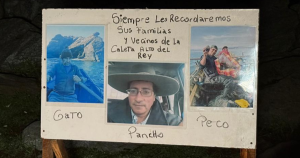 Siempre Les Recordaremos
Sus Familias
y Vecinos de la
Caleta Alto del
Rey
Gato
Pancho
Peco